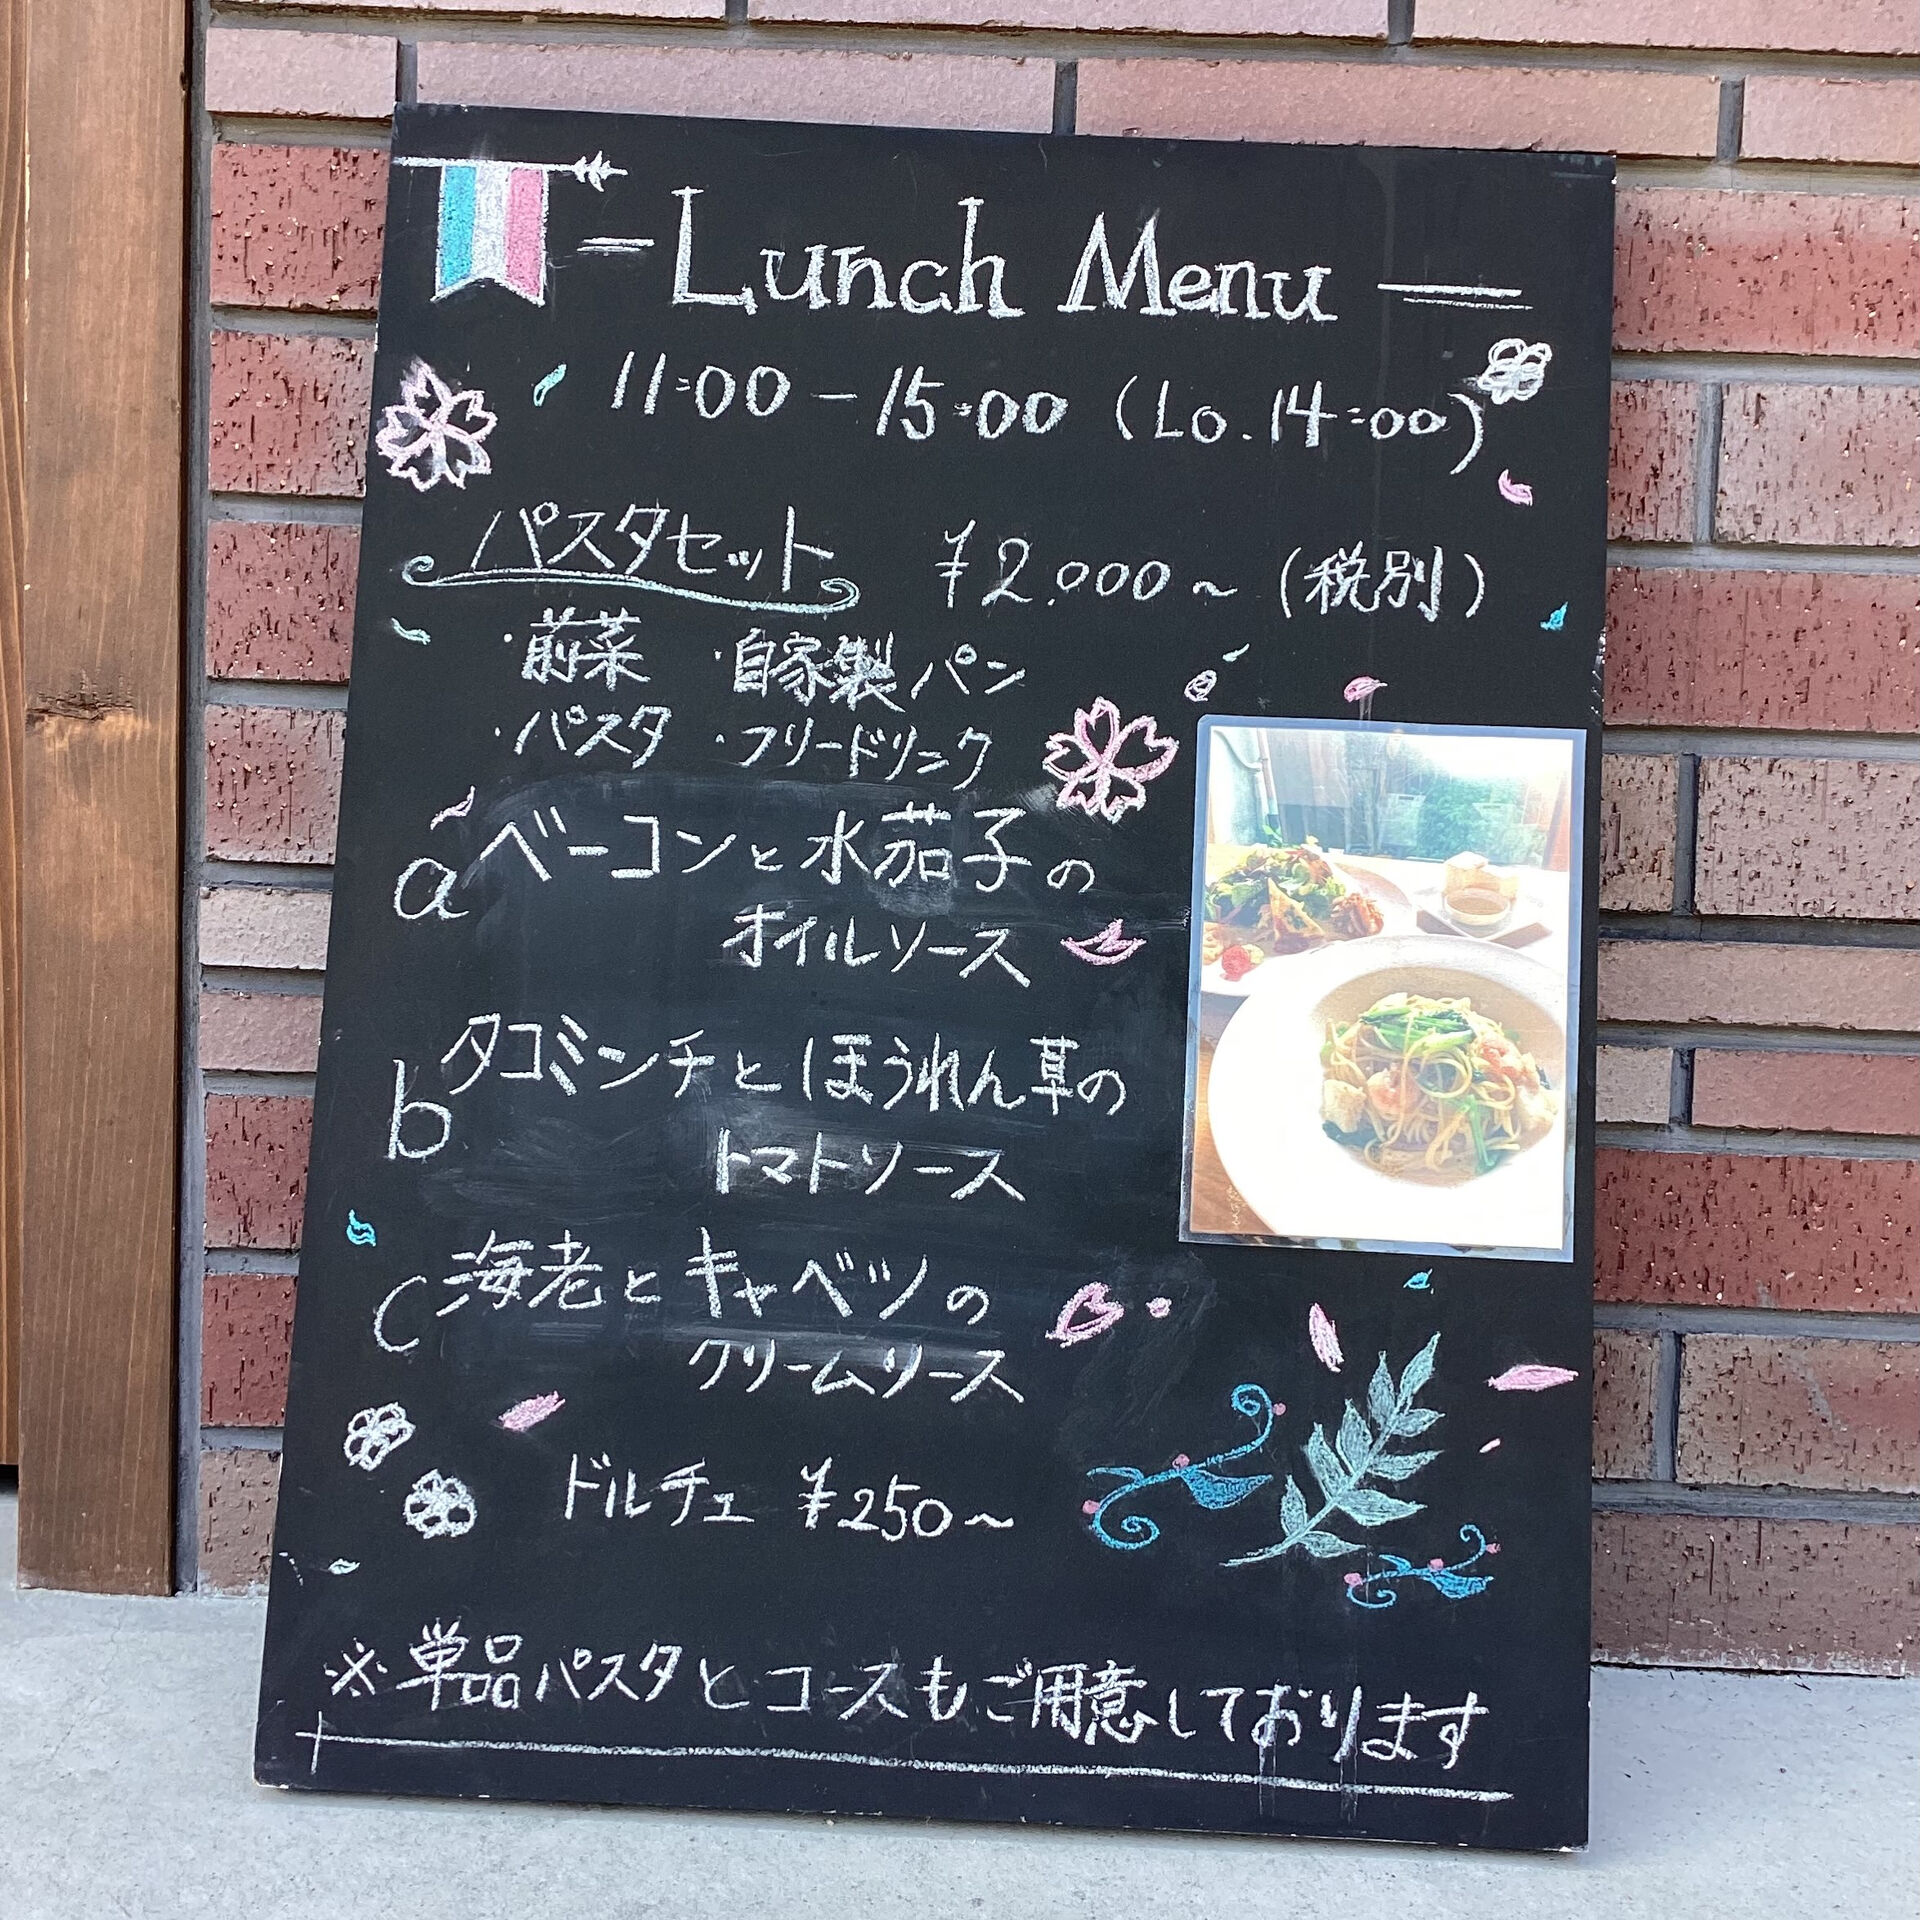 Lunch Menu
11:00 - 15:00 (Lo. 14:00)
パスタセット ¥2,000~ (税別)
・前菜 ・自家製パン
・パスタ ・フリードリンク
a ベーコンと水茄子の
オイルソース
b タコミンチとほうれん草の
トマトソース
c 海老とキャベツの
クリームソース
ドルチェ ¥250~
※単品パスタとコースもご用意しております